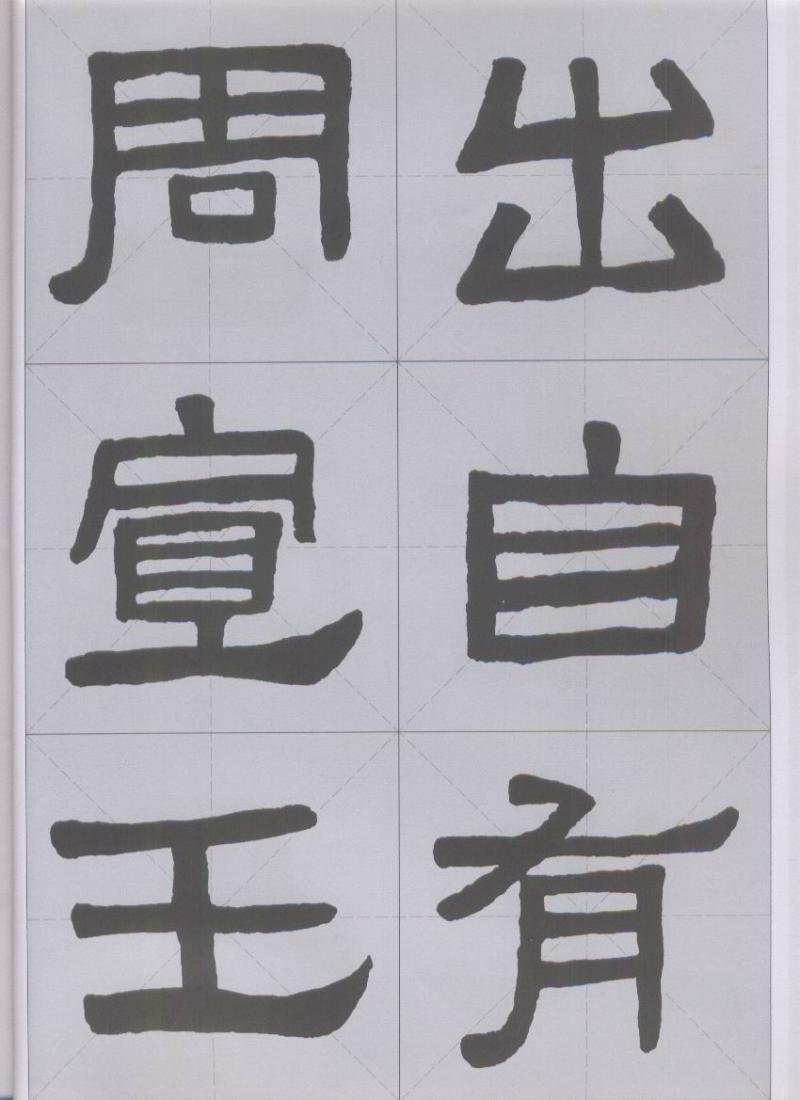 出自有
周宣王